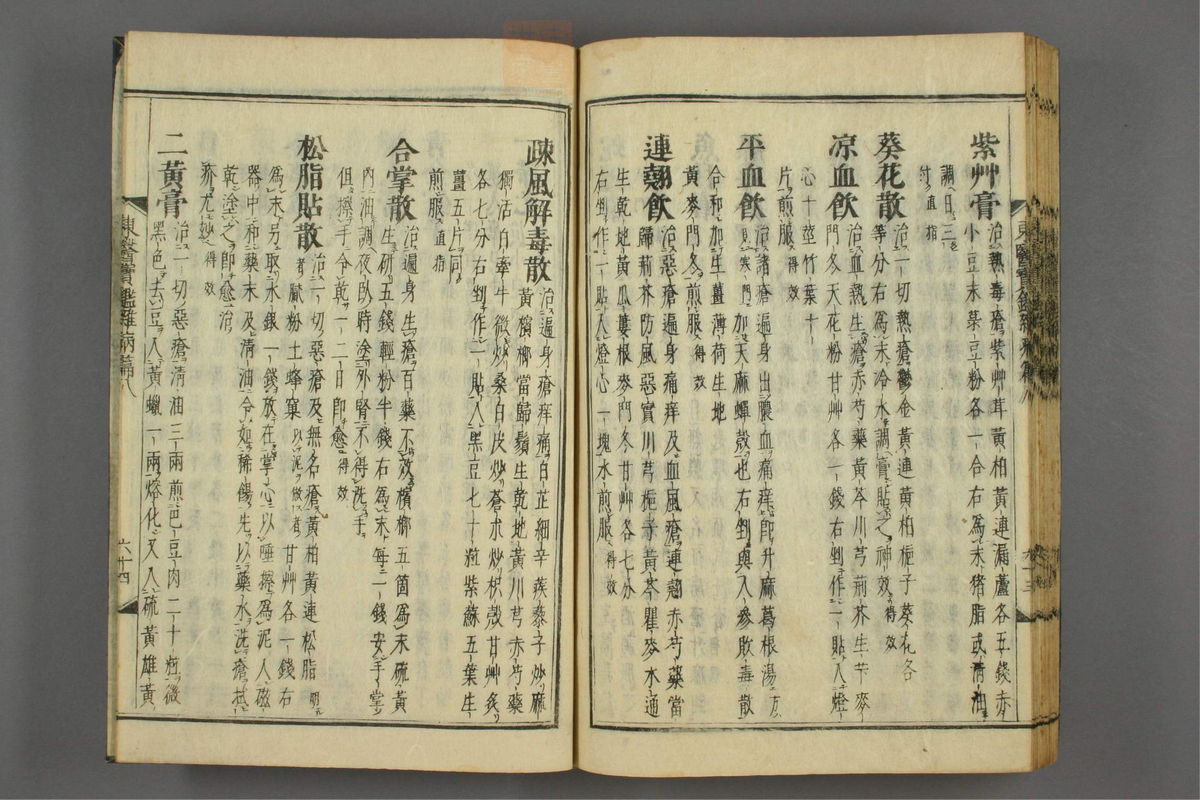 紫艸膏治熱毒瘡紫艸茸黃柏黃連漏蘆各五錢赤
小豆末菉豆粉各一合右為末猪脂或清油
調日三
付直指
葵花散治一切熱瘡鬱金黃連黃柏梔子葵花各
等分右為末冷水調膏貼之神效得效
凉血飲治血熱生瘡赤芍藥黃芩川芎荊芥生芐麥
門冬天花粉甘艸各一錢右剉作一貼入燈
心十莖竹葉十
片煎服得效
平血飲治諸瘡遍身出膿血痛痒即升麻葛根湯方
見寒門加天麻蟬殼也右剉與人參敗毒散
合和加生薑薄荷生地
黃麥門冬煎服得效
連翹飲治惡瘡遍身痛痒及血風瘡連翹赤芍藥當
歸荊芥防風惡實川芎梔子黃芩瞿麥木通
生乾地黃瓜蔞根麥門冬甘艸各七分
右剉作一貼入燈心一塊水煎服得效
疎風解毒散治遍身瘡痒痛白芷細辛蒺藜子炒麻
黃檳榔當歸鬚生乾地黃川芎赤芍藥
獨活白牽牛微炒桑白皮炒蒼朮炒枳殼甘艸炙
各七分右剉作一貼入黑豆七十粒紫蘇五葉生
薑五片同
煎服直指
合掌散治遍身生瘡百藥不效檳榔五箇為末硫黃
生研五錢輕粉半錢右為末每一錢安手掌
內油調夜臥時塗外腎不得洗手
但擦手令乾一二日即愈得效
松脂貼散治一切惡瘡及無名瘡黃柏黃連松脂明
者膩粉土蜂窠以泥做者甘艸各一錢右
為末另取水銀一錢放在掌心以唾擦為泥入磁
器中和藥末及清油令如稀餳先以藥水洗瘡拭
乾塗之即愈治
疥尤妙得效
二黃膏治一切惡瘡清油三兩煎巴豆肉二十粒微
黑色去豆入黃蠟一兩熔化又入硫黃雄黃
東醫寶鑑雜病篇八
六十四